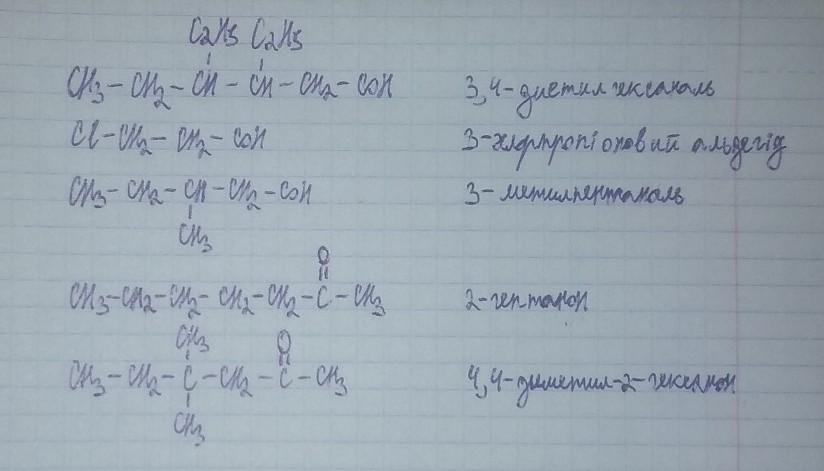 C₂H₅ C₂H₅
CH₃ – CH₂ – CH – CH – CH₂ – COH 3,4-диетилгексаналь
Cl – CH₂ – CH₂ – COH 3-хлорпропіоновий альдегід
CH₃ – CH₂ – CH – CH₂ – COH 3-метилпентаналь
CH₃
O
CH₃ – CH₂ – CH₂ – CH₂ – CH₂ – C – CH₃ 2-гептанон
CH₃ O
CH₃ – CH₂ – C – CH₂ – C – CH₃ 4,4-диметил-2-гексанон
CH₃